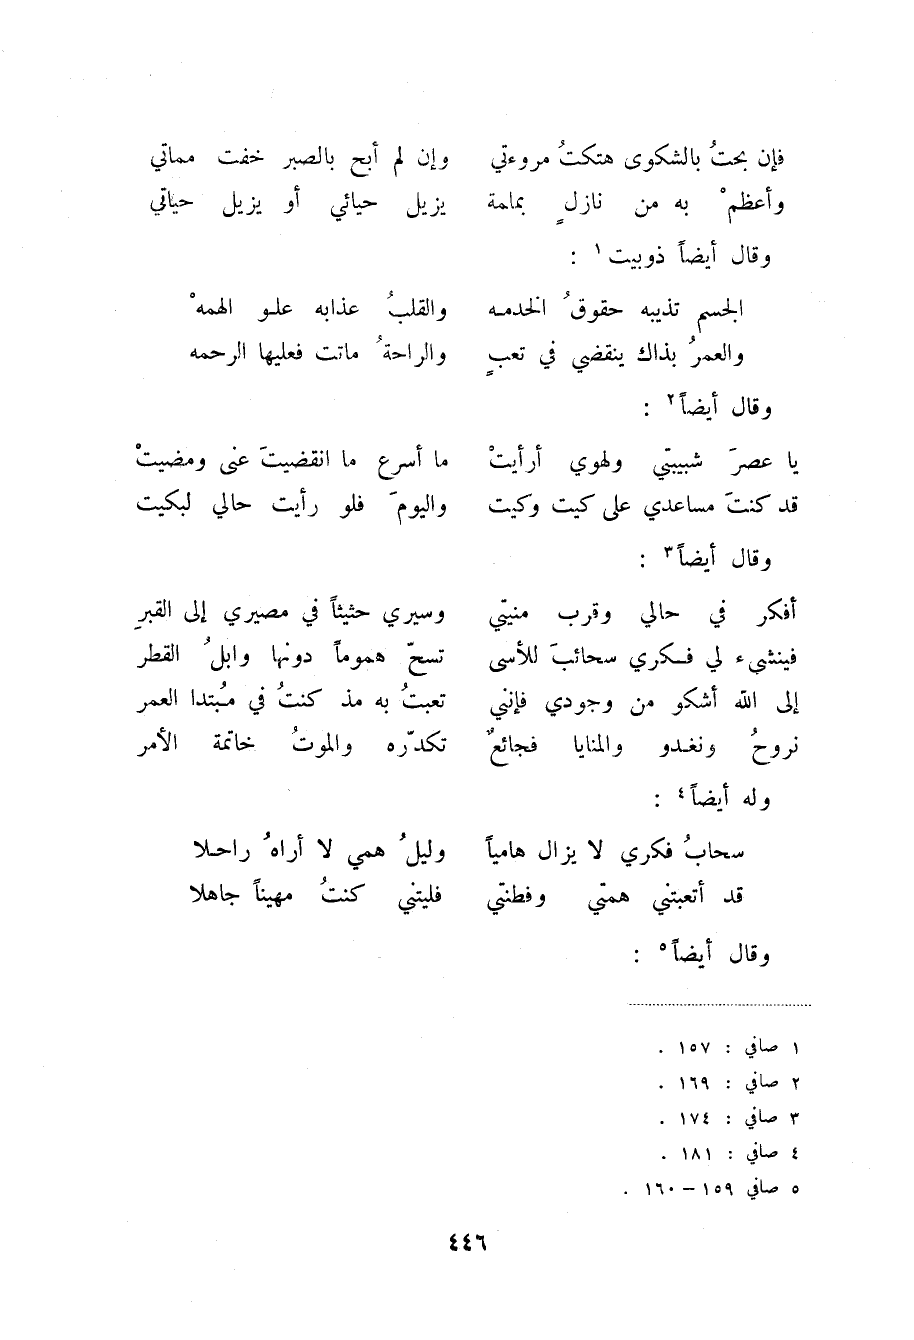 فإن بحتُ بالشكوى هتكتُ مروءتي وإن لم أبح بالصبر خفت مماتي
وأعظمْ به من نازلٍ بملمة يزيل حيائي أو يزيل حياتي
وقال أيضاً ذوبيت ١ :
الجسم تذيبه حقوقُ الخدمه والقلبُ عذابه علو الهمهْ
والعمرُ بذاك ينقضي في تعبٍ والراحةُ ماتت فعليها الرحمه
وقال أيضاً ٢ :
يا عصرَ شبيبتي ولهوي أرأيتْ ما أسرع ما انقضيتَ عني ومضيتْ
قد كنتَ مساعدي على كيت وكيت واليومَ فلو رأيت حالي لبكيت
وقال أيضاً ٣ :
أفكر في حالي وقرب منيتي وسيري حثيثاً في مصيري إلى القبرِ
فينشيء لي فكري سحائبَ للأسى تسحّ هموماً دونها وابلُ القطر
إلى الله أشكو من وجودي فإنني تعبتُ به مذ كنتُ في مُبتدا العمر
نروحُ ونغدو والمنايا فجائعٌ تكدّره والموتُ خاتمة الأمر
وله أيضاً ٤ :
سحابُ فكري لا يزال هامياً وليلُ همي لا أراهُ راحلا
قد أتعبتني همّتي وفطنتي فليتني كنتُ مهيناً جاهلا
وقال أيضاً ٥ :
١ صافي : ١٥٧ .
٢ صافي : ١٦٩ .
٣ صافي : ١٧٤ .
٤ صافي : ١٨١ .
٥ صافي ١٥٩ – ١٦٠ .
٤٤٦